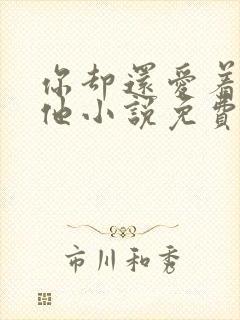 你却還愛着
他小説免費
市川和秀